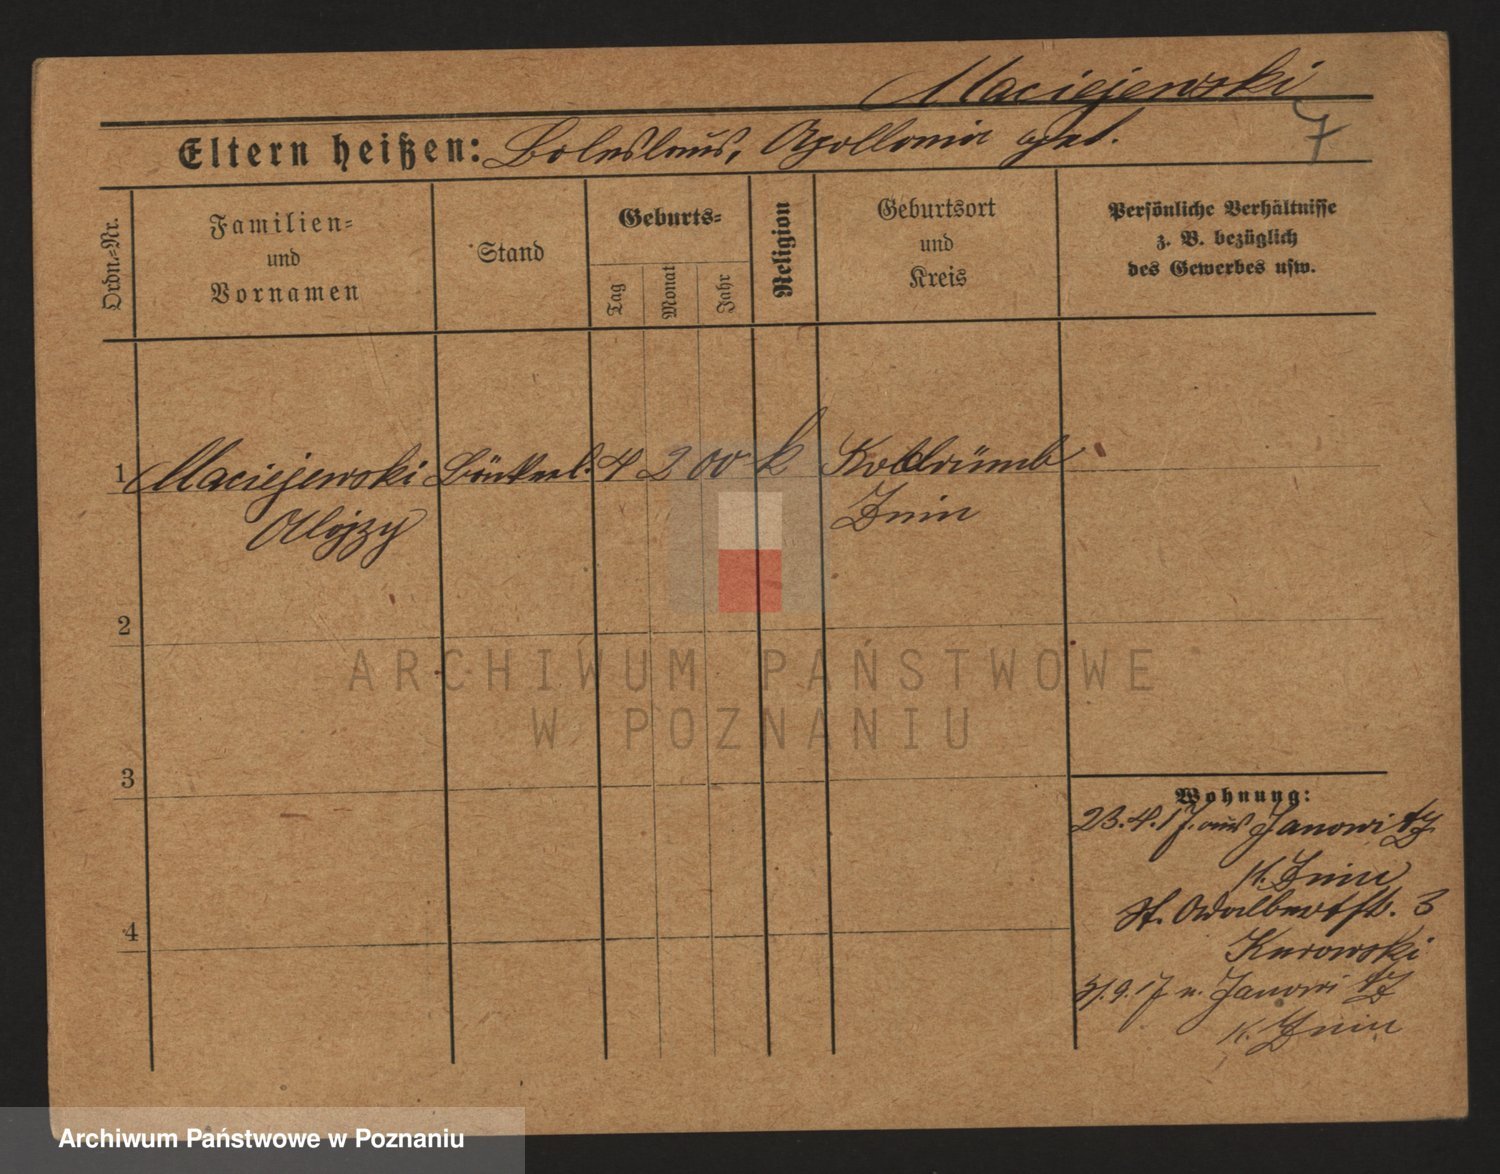 Maciejewski
7
Eltern heißen: Boleslaus, Apollonia geb.
Ordn.-Nr.
Familien- und Vornamen
Stand
Geburts-
Tag
Monat
Jahr
Religion
Geburtsort und Kreis
Persönliche Verhältnisse
z. B. bezüglich
des Gewerbes usw.
1 Maciejewski Bäckerl. 4 2 00 k
Alojzy Znin
2
3
4
Wohnung:
23.4.17. aus Janowitz
K. Znin
St. Adalbertstr. 3
Kurowski
9.17 n. Janowitz
K. Znin
ARCHIWUM PAŃSTWOWE
W POZNANIU
Archiwum Państwowe w Poznaniu